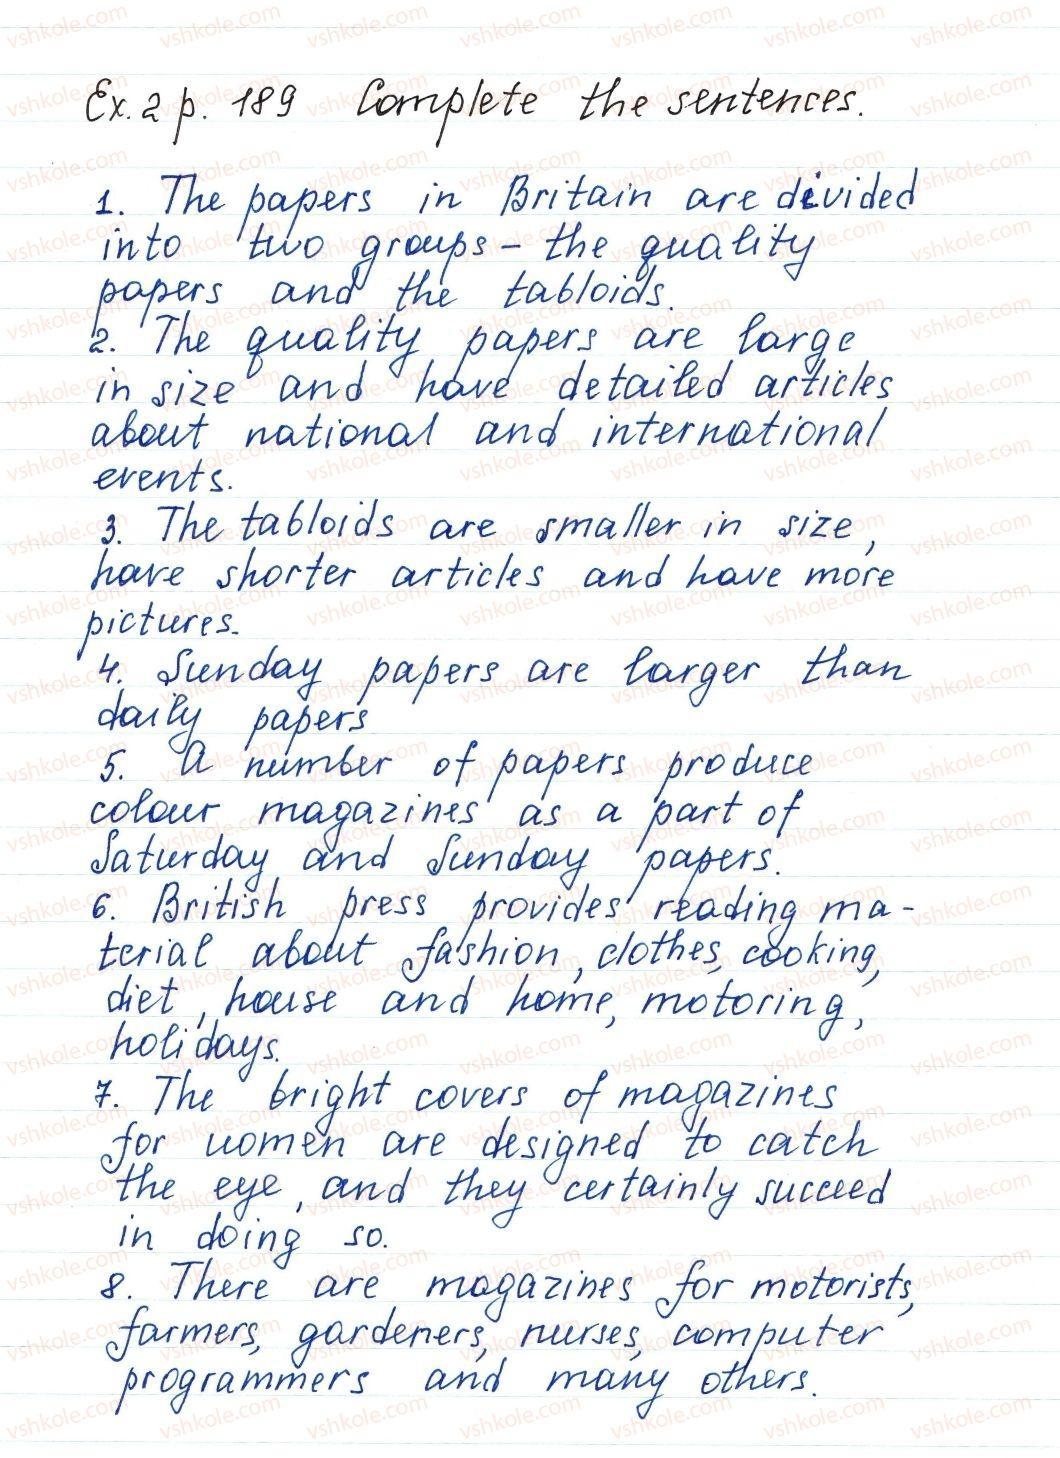 Ex. 2 p. 189 Complete the sentences.
1. The papers in Britain are divided
into two groups – the quality
papers and the tabloids.
2. The quality papers are large
in size and have detailed articles
about national and international
events.
3. The tabloids are smaller in size,
have shorter articles and have more
pictures.
4. Sunday papers are larger than
daily papers
5. A number of papers produce
colour magazines as a part of
Saturday and Sunday papers.
6. British press provides reading ma-
terial about fashion, clothes, cooking,
diet, house and home, motoring,
holidays.
7. The bright covers of magazines
for women are designed to catch
the eye, and they certainly succeed
in doing so.
8. There are magazines for motorists,
farmers, gardeners, nurses, computer
programmers and many others.
vshkole.com